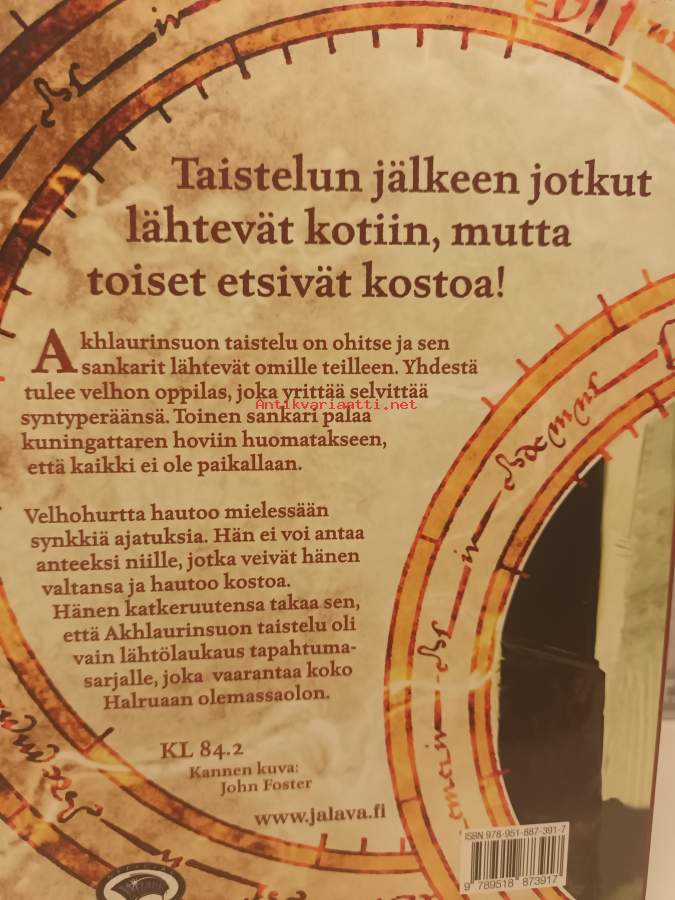 Taistelun jälkeen jotkut
lähtevät kotiin, mutta
toiset etsivät kostoa!
Akhlaurinsuon taistelu on ohitse ja sen
sankarit lähtevät omille teilleen. Yhdestä
tulee velhon oppilas, joka yrittää selvittää
Antikvariaatti.net
syntyperäänsä. Toinen sankari palaa
kuningattaren hoviin huomatakseen,
että kaikki ei ole paikallaan.
Velhohurtta hautoo mielessään
synkkiä ajatuksia. Hän ei voi antaa
anteeksi niille, jotka veivät hänen
valtansa ja hautoo kostoa.
Hänen katkeruutensa takaa sen,
että Akhlaurinsuon taistelu oli
vain lähtölaukaus tapahtuma-
sarjalle, joka vaarantaa koko
Halruaan olemassaolon.
KL 84.2
Kannen kuva:
John Foster
www.jalava.fi
ISBN 978-951-887-391-7
9 789518 873917